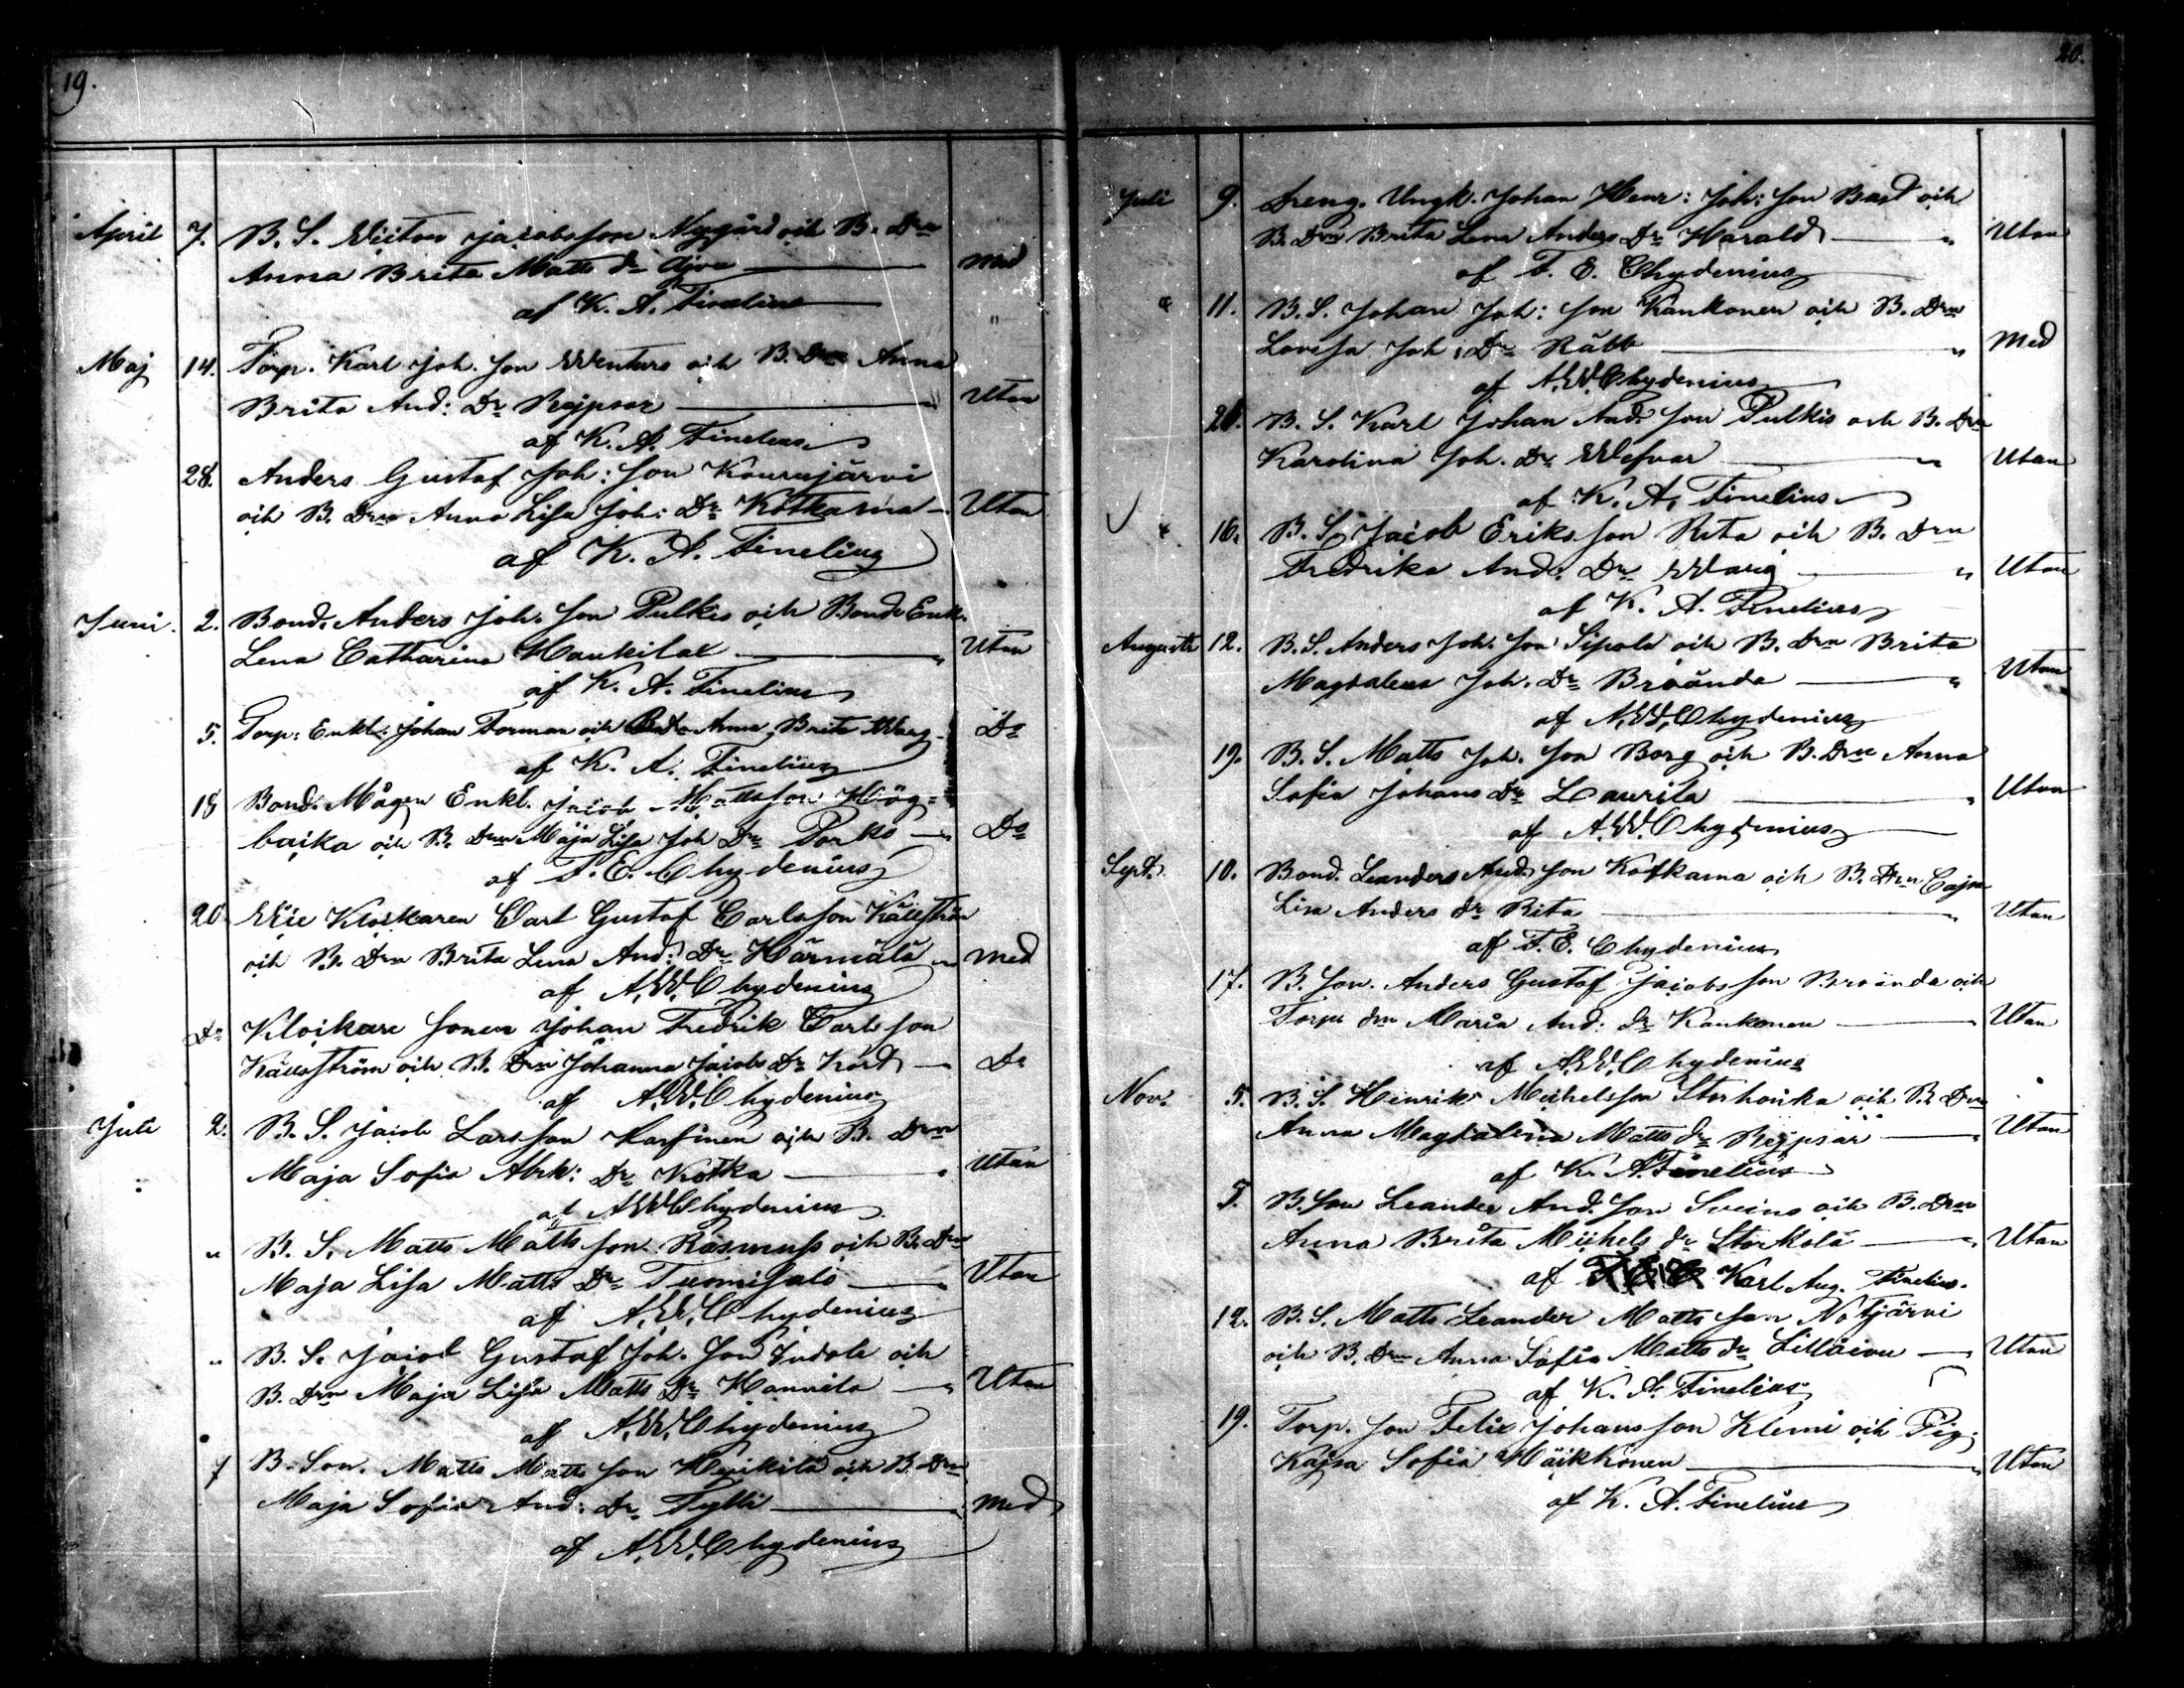 19.
April 7. B. S. Victor Jacobsson Nygård och B. Drn
Anna Brita Matts dr Ajva Med
af K. A. Finelius
Maj 14. Torp. Karl Joh. Son Wenturs och B. Drn Anna
Brita And: Dr Rejpsar Utan
af K. A. Finelius
28. Anders Gustaf Joh: Son Kourujärvi
och B. Drn Anna Lisa Joh: Dr Kotkama Utan
af K. A. Finelius
Juni. 2. Bond. Anders Joh. Son Pulkis och Bonde Enk.
Lena Catharina Haukilax Utan
af K. A. Finelius
5. Torp: Enkl: Johan Forman och Anna Brita Warg Do
af K. A. Finelius
18 Bond. Mågen Enkl. Jacob Mattsson Hög=
backa och B. Drn Maja Lisa Joh Dr Porko Do
af F. E. Chydenius
20 Vice Klockaren Carl Gustaf Carlsson Källström
och B. Drn Brita Lena And: Dr Härmälä Med
af A. W. Chydenius
Do Klockare Sonen Johan Fredrik Carlsson
Källström och B. Drn Johanna Jacobs Dr Kort Do
af A. W. Chydenius
Juli 2. B. S. Jacob Larsson Karhinen och B. Drn
Maja Sofia Abrh: Dr Kotka Utan
af A. W. Chydenius
" B. S. Matts Matts son Räsmuss och B. Drn
Maja Lisa Matts Dr Tuomisalo Utan
af A. W. Chydenius
" B. S. Jacob Gustaf Joh. Son Jndola och
B. Drn Maja Lisa Matts Dr Hannila Utan
af A. W. Chydenius
7 B. Son. Matts Matts Son Hyikilä och B. Drn
Maja Sofia And: Dr Tylli Med
af A. W. Chydenius
20.
Juli 9. Dreng. Ungk. Johan Henr: Joh: Son Bast och
B. Drn Brita Lena Anders Dr Harald Utan
af F. E. Chydenius
" 11. B. S. Johan Joh: Son Kankonen och B. Drn
Lovisa Joh: Dr Råbb Med
af A. W. Chydenius
26. B. S. Karl Johan And: Son Pulkis och B. Drn
Karolina Joh. Dr Wefvar Utan
af K. A. Finelius
" 16. B. S. Jacob Eriksson Rita och B. Drn
Fredrika And: Dr Warg Utan
af K. A. Finelius
Augusti 12. B. S. Anders Joh. Son Sipola och B. Drn Brita
Magdalena Joh. Dr Broända Utan
af A. W. Chydenius
19. B. S. Matts Joh. Son Borg och B. Drn Anna
Sofia Johans Dr Laurila Utan
af A. W. Chydenius
Sept. 10. Bond. Leanders And. Son Kotkama och B. Drn Cajsa
Lisa Anders dr Rita Utan
af F. E. Chydenius
17. B. Son. Anders Gustaf Jacobsson Broända och
Torp drn Maria And: dr Kankonen Utan
af A. W. Chydenius
Nov. 5. B. S. Henrik Michelsson Storhonka och B. Drn
Anna Magdalena Matts dr Rejpsar Utan
af K. A. Finelius
5. B. Son Leander And. Son Sveins och B. Drn
Anna Brita Michels dr Storkola Utan
af Karl Aug. Finelius.
12. B. S. Matts Leander Matts Son Notjärvi
och B. Drn Anna Sofia Matts dr Lilloivu Utan
af K. A. Finelius
19. Torp. Son Felix Johansson Klemi och Pig.
Kajsa Sofia Häikkönen Utan
af K. A. Finelius